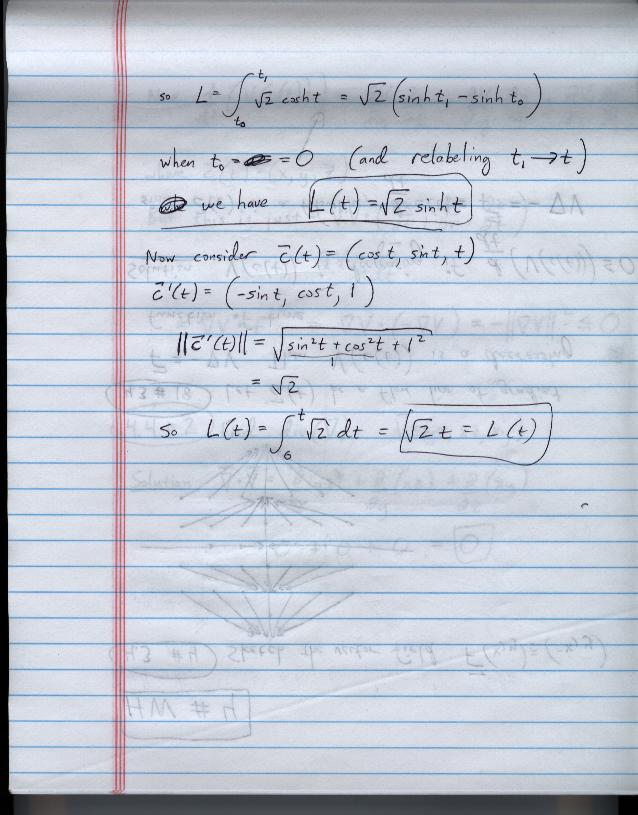 so L = ∫_{t₀}^{t₁} √2 cosh t = √2 (sinh t₁ - sinh t₀)
when t₀ = 0 (and relabeling t₁ → t)
we have L(t) = √2 sinh t
Now consider c̄(t) = (cos t, sin t, t)
c̄'(t) = (-sin t, cos t, 1)
||c̄'(t)|| = √(sin²t + cos²t + 1²)
1
= √2
so L(t) = ∫₀^t √2 dt = √2 t = L(t)